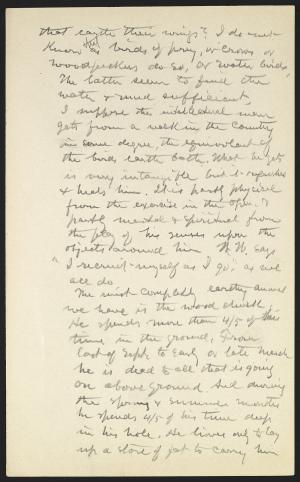 that earth their wings? I do not
know that as birds of prey, or crows or
woodpeckers do so, or water birds,
The latter seem to find the
water & mud sufficient.
I suppose the intellectual man
gets from a walk in the country
in some degree, the equivalent of
the birds earth bath. What he gets
is very intangible but it refreshes
& heals him. It is partly physical
from the exercise in the open, &
partly mental & spiritual from
the play of his senses upon the
objects around him W. W. says
"I recruit myself as I go", as we
all do.
The most completely earthy animal
we have is the wood chuck
He spends more than 4/5 of his
time in the ground, From
last of Sept. to Early or late March
he is dead to all that is going
on above ground And during
the spring & summer months
he spends 4/5 of his time deep
in his hole. He lives only to lay
up a store of fat to carry him